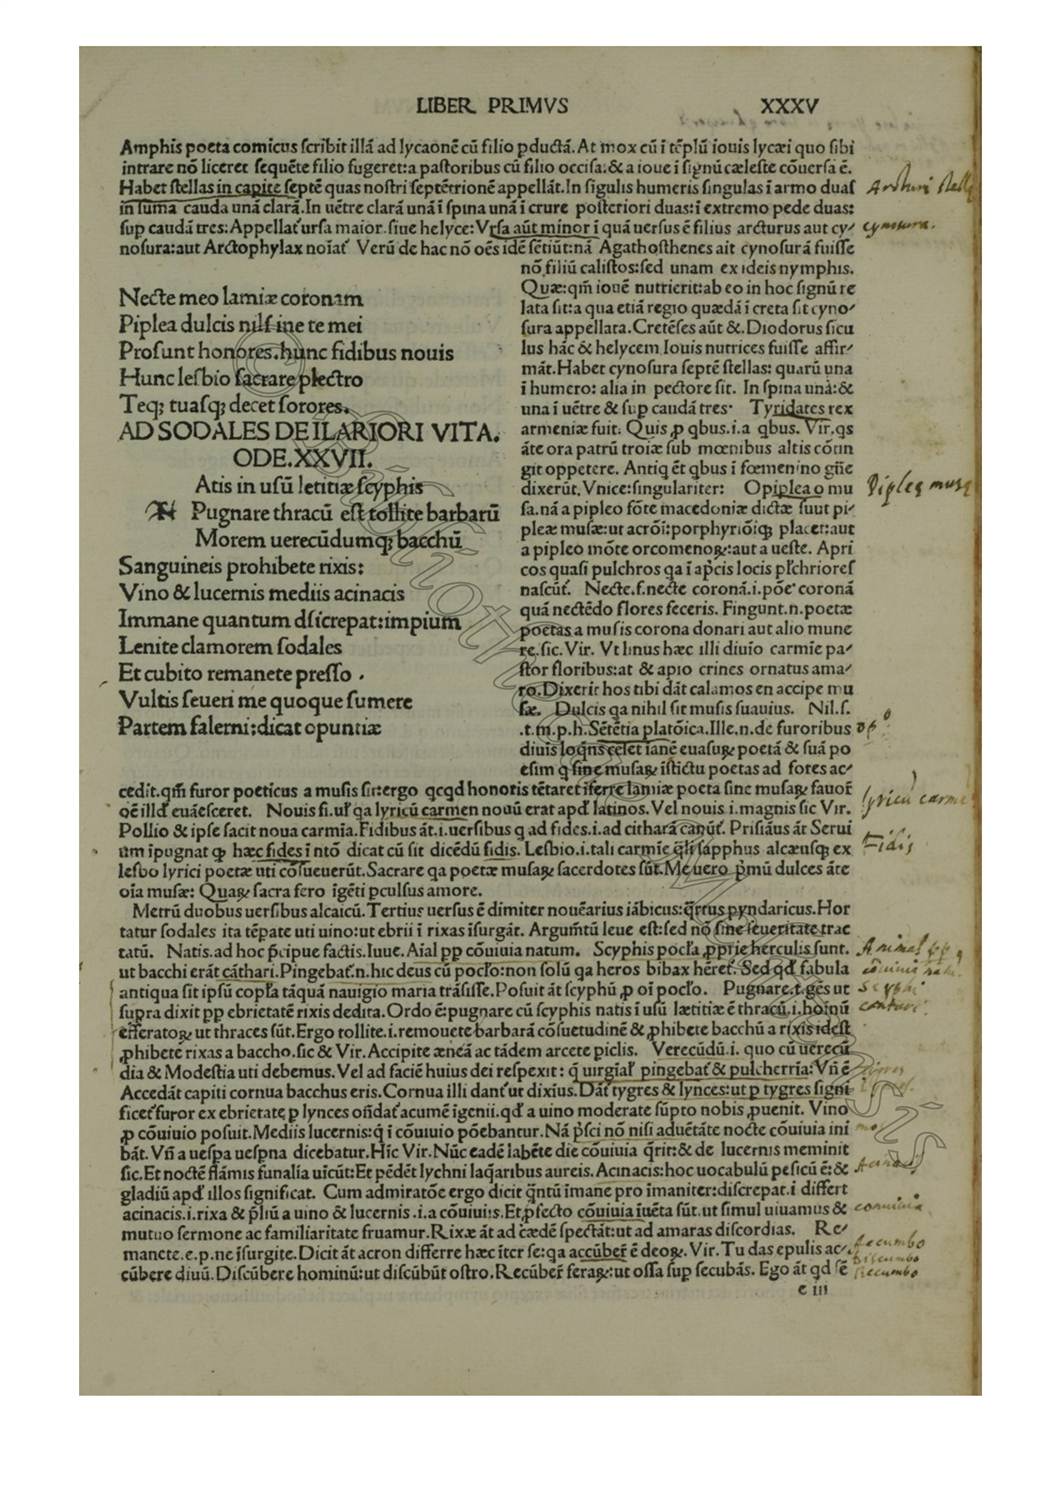 LIBER PRIMVS XXXV
Amphis poeta comicus scribit illã ad lycaonẽ cũ filio pductã. At mox cũ ĩ tẽplũ iouis lycæi quo sibi
intrare nõ liceret sequẽte filio fugeret: a pastoribus cũ filio occisa: & a ioue ĩ signũ cæleste cõuersa ẽ.
Habet stellas in capite septẽ quas nostri septẽtrionẽ appellãt. In sĩgulis humeris singulas ĩ armo duas
in sũma cauda unã clarã. In uẽtre clarã unã ĩ spina unã ĩ crure posteriori duas: ĩ extremo pede duas:
sup caudã tres: Appellat ursa maior siue helyce: Vrsa aũt minor ĩ quã uersus ẽ filius arcturus aut cy-
nosura: aut Arctophylax noĩat Verũ de hac nõ oẽs idẽ sẽtiũt: nã Agathosthenes ait cynosurã fuisse
nõ filiũ calistos: sed unam ex ideis nymphis.
Quæ: qm̃ iouẽ nutrierit: ab eo in hoc signũ re
lata sit: a qua etiã regio quædã ĩ creta sit cyno-
sura appellata. Cretẽses aũt &. Diodorus sicu
lus hãc & helycem Iouis nutrices fuisse affir-
mãt. Habet cynosura septẽ stellas: quarũ una
ĩ humero: alia in pectore sit. In spina unã: &
una ĩ uẽtre & sup caudã tres. Tyridates rex
armeniæ fuit. Quis ꝓ qbus .i. a qbus. Vir. qs
ãte ora patrũ troiæ sub mœnibus altis cõtin
git oppetere. Antiq ẽt qbus ĩ fœmenino gñe
dixerũt. Vnice: singulariter: O piplea o mu
sa. nã a pipleo fõte macedoniæ dictæ sũt pi-
pleæ musæ: ut acrõĩ: porphyriõĩq; placet: aut
a pipleo mõte orcomenoꝝ: aut a ueste. Apri
cos quasi pulchros qa ĩ apcis locis plchriores
nascũt. Necte. s. necte coronã .i. põe coronã
quã nectẽdo flores feceris. Fingunt .n. poetæ
poetas a musis corona donari aut alio mune
re. sic. Vir. Vt linus hæc illi diuio carmĩe pa-
stor floribus: at & apio crines ornatus ama-
ro. Dixerit hos tibi dãt calamos en accipe mu
sæ. Dulcis qa nihil sit musis suauius. Nil. s.
.t. m. p. h. Sẽtẽtia platõica. Ille .n. de furoribus
diuis loqns
esim q sine musaꝝ ĩstictu poetas ad fores ac-
Necte meo lamiæ coronam
Piplea dulcis nil sine te mei
Prosunt honores. hunc fidibus nouis
Hunc lesbio sacrare plectro
Teq; tuasq; decet sorores.
AD SODALES DE ILARIORI VITA.
ODE. XXVII.
Atis in usũ letitiæ scyphis
N Pugnare thracũ est tollite barbarũ
Morem uerecũdumq; bacchũ
Sanguineis prohibete rixis:
Vino & lucernis mediis acinacis
Immane quantum dsicrepat: impium
Lenite clamorem sodales
Et cubito remanete presso.
Vultis seueri me quoque sumere
Partem falerni: dicat opuntiæ
cedit. qm̃ furor poeticus a musis sit: ergo qcqd honoris tẽtaret ĩferre lamiæ poeta sine musaꝝ fauor
oẽ illd euãesceret. Nouis si. ul qa lyricũ carmen nouũ erat apd latinos. Vel nouis .i. magnis sic Vir.
Pollio & ipse facit noua carmĩa. Fidibus ãt .i. uersibus q ad fides .i. ad citharã canũt. Prisiãus ãt Serui
ũm ĩpugnat qp hæc fides ĩ ntõ dicat cũ sit dicẽdũ fidis. Lesbio .i. tali carmĩe qli sapphus alcæusq; ex
lesbo lyrici poetæ uti cõsueuerũt. Sacrare qa poetæ musaꝝ sacerdotes sũt. Me uero pmũ dulces ãte
oĩa musæ: Quaꝝ sacra fero ĩgẽti pculsus amore.
Metrũ duobus uersibus alcaicũ. Tertius uersus ẽ dimiter nouẽarius iãbicus: qrtus pyndaricus. Hor
tatur sodales ita tẽpate uti uino: ut ebrii ĩ rixas ĩsurgãt. Argumtũ leue est: sed nõ sine seueritate trac
tatũ. Natis. ad hoc pcipue factis. Iuue. Aĩal pp cõuiuia natum. Scyphis pocla pprie herculis sunt.
ut bacchi erãt cãthari. Pingebat .n. hic deus cũ poclo: non solũ qa heros bibax hẽret. Sed qd fabula
antiqua sit ipsũ copla tãquã nauigio maria trãsisse. Posuit ãt scyphũ ꝓ oĩ poclo. Pugnare .t. gẽs ut
supra dixit pp ebrietatẽ rixis dedita. Ordo ẽ: pugnare cũ scyphis natis ĩ usũ lætitiæ ẽ thracũ .i. hoĩnũ
efferatoꝝ ut thraces sũt. Ergo tollite .i. remouete barbarã cõsuetudinẽ & ꝓhibete bacchũ a rixis idest
ꝓhibete rixas a baccho. sic & Vir. Accipite ænẽã ac tãdem arcete piclis. Verecũdũ .i. quo cũ uerecũ
dia & Modestia uti debemus. Vel ad faciẽ huius dei respexit: q uirgial pingebat & pulcherria: Vñ ẽ
Accedãt capiti cornua bacchus eris. Cornua illi dant ut dixius. Dãt tygres & lynces: ut p tygres signi
ficet furor ex ebrietate p lynces oñdat acumẽ ĩgenii. qd a uino moderate sũpto nobis ꝓuenit. Vino
ꝓ cõuiuio posuit. Mediis lucernis: q ĩ cõuiuio põebantur. Nã psci nõ nisi aduẽtãte nocte cõuiuia ini
bãt. Vñ a uespa uespna dicebatur. Hĩc Vir. Nũc eadẽ labẽte die cõuiuia qrit: & de lucernis meminit
sic. Et noctẽ flãmis funalia uĩcũt: Et pẽdẽt lychni laqaribus aureis. Acinacis: hoc uocabulũ psicũ ẽ: &
gladiũ apd illos significat. Cum admiratõe ergo dicit qntũ ĩmane pro ĩmaniter: discrepat .i. differt
acinacis .i. rixa & pliũ a uino & lucernis .i. a cõuiuiis. Et pfecto cõuiuia iuẽta sũt. ut simul uiuamus &
mutuo sermone ac familiaritate fruamur. Rixæ ãt ad cædẽ spectãt: ut ad amaras discordias. Re-
manete. e. p. ne ĩsurgite. Dicit ãt acron differre hæc ĩter se: qa accũber ẽ deoꝝ. Vir. Tu das epulis ac-
cũbere diuũ. Discũbere hominũ: ut discũbũt ostro. Recũber feraꝝ: ut ossa sup secubãs. Ego ãt qd sẽ
e iii
Arcturi stellę
cynosura.
Pipleę musę
lyricũ carmẽ
Fidis
Scyphi
cantari
conuiuia
Accumbo
Discumbo
Recumbo